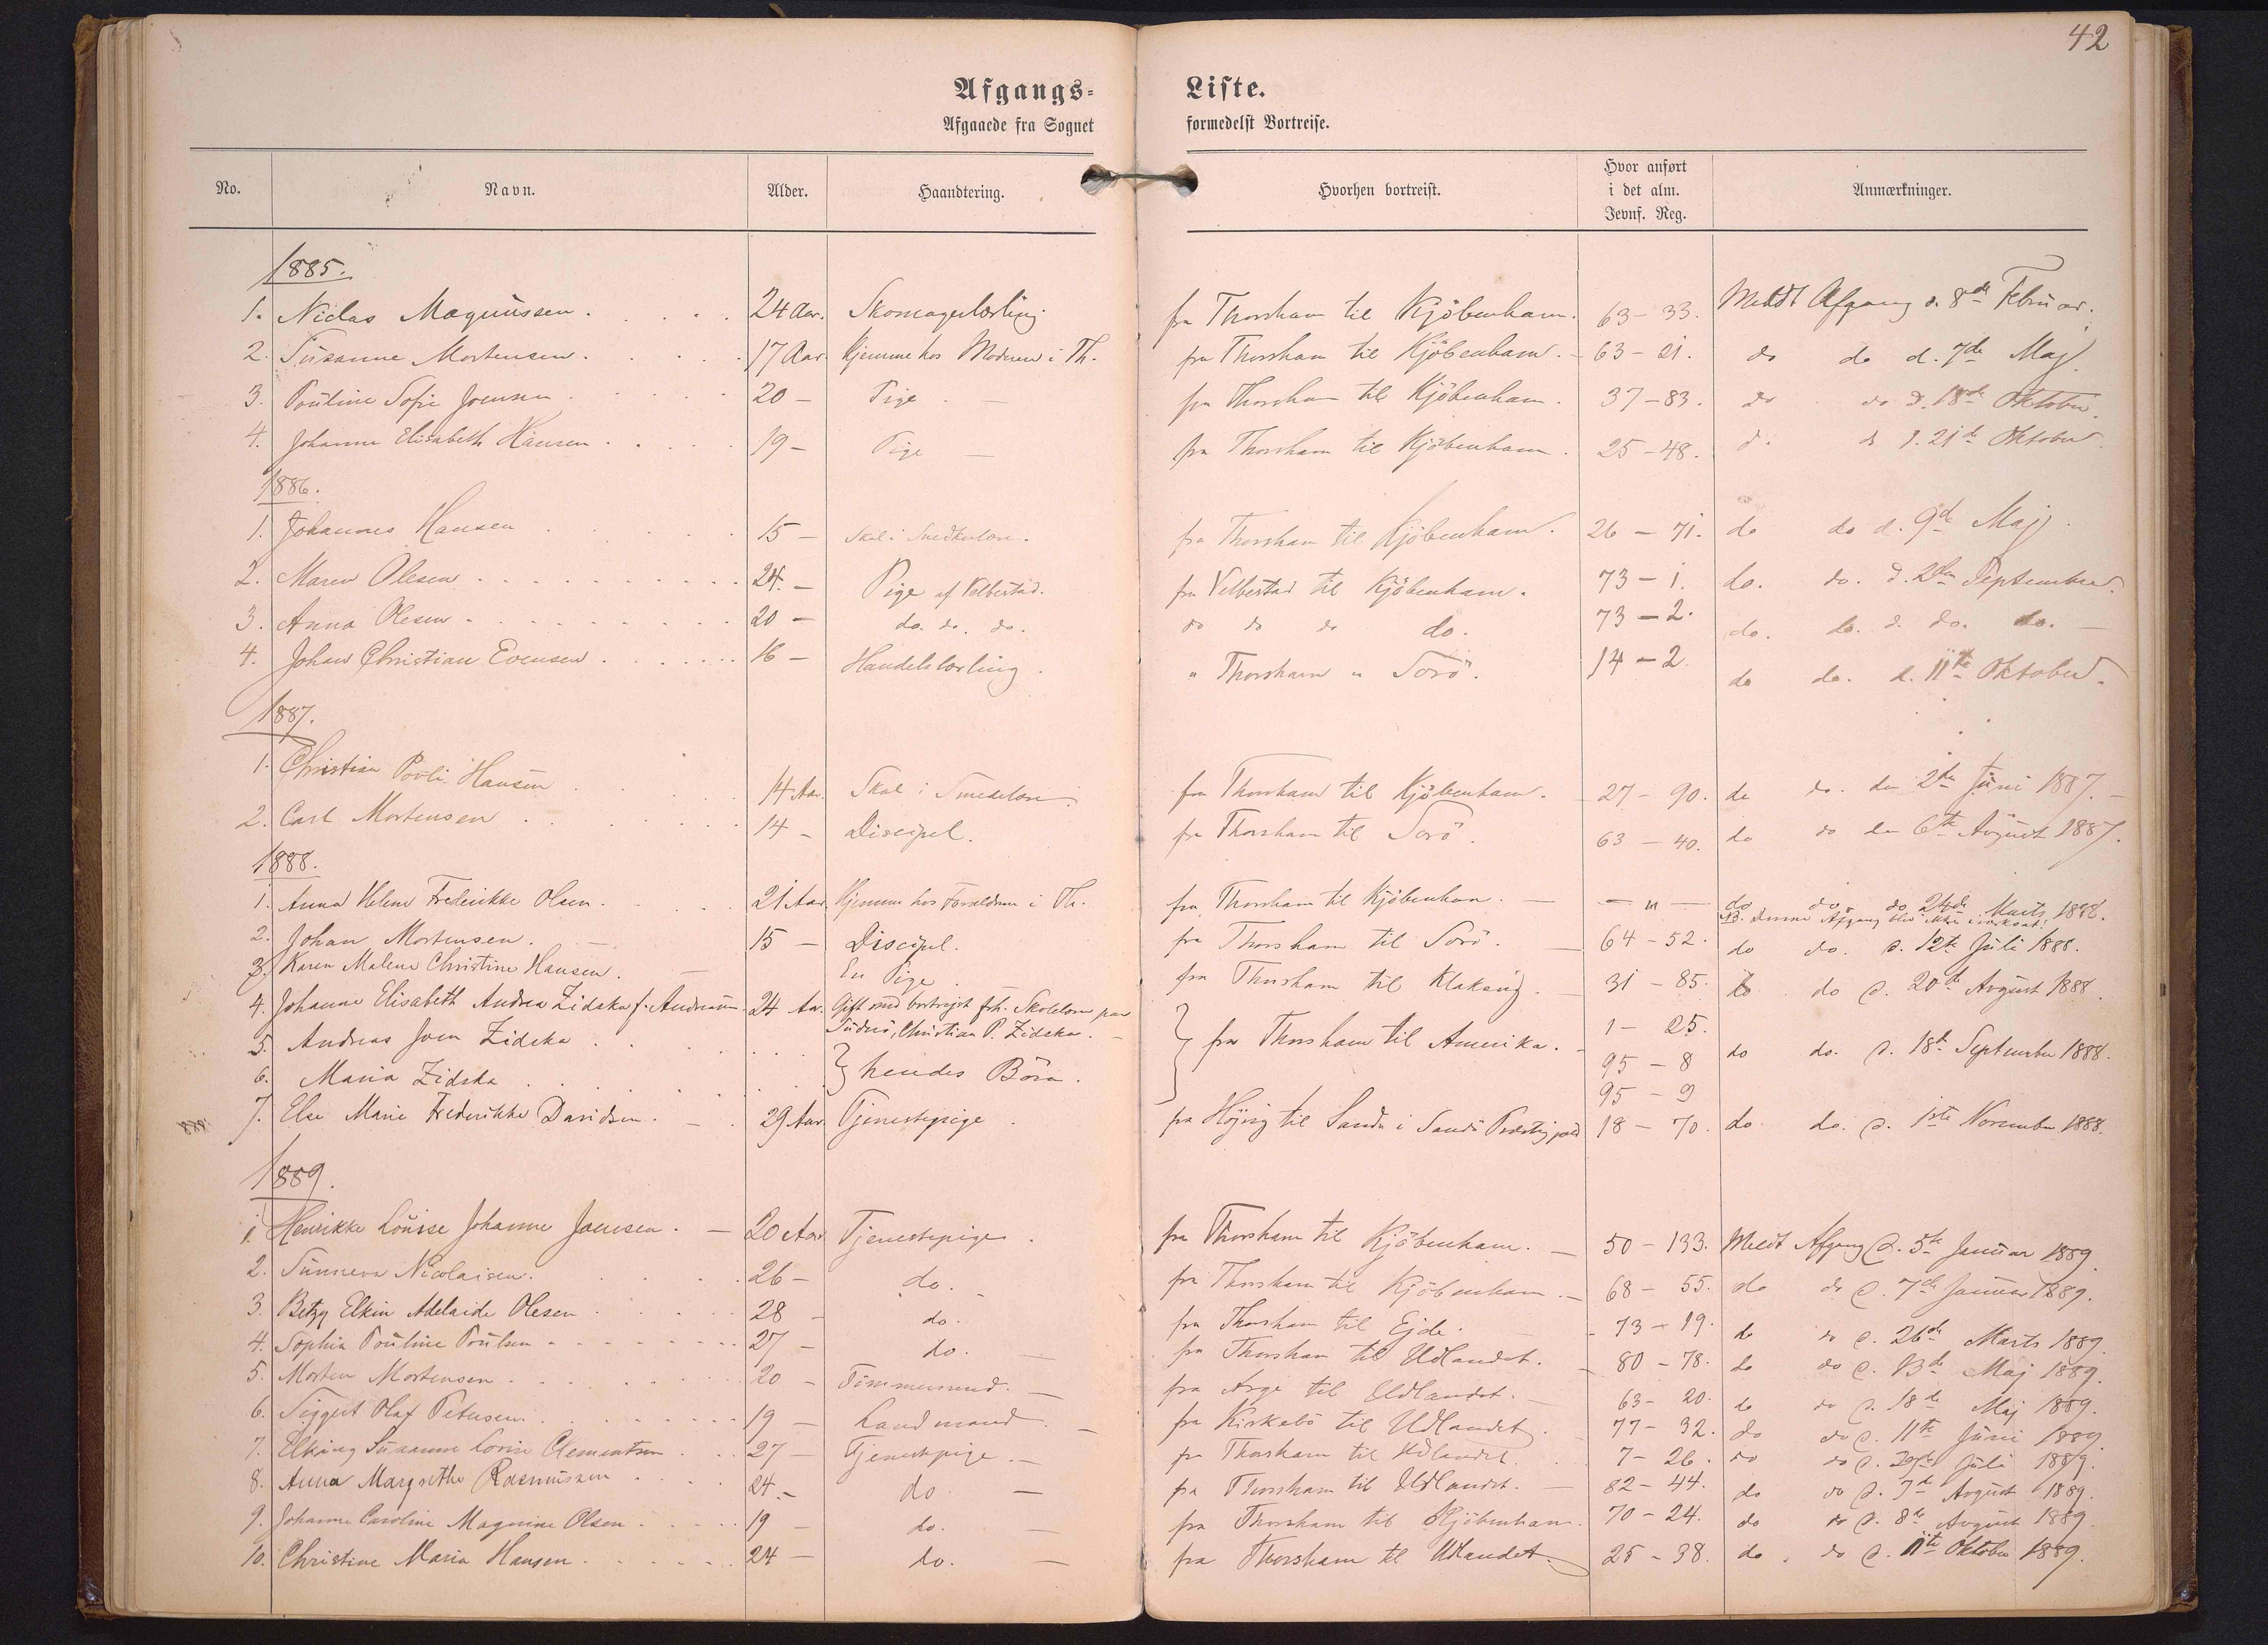 42
Afgangs- Liste.
Afgaaede fra Sognet formedelst Bortreise.
No. Navn. Alder. Haandtering. Hvorhen bortreist. Hvor anført i det alm. Jevnf. Reg. Anmærkninger.
1885.
1. Niclas Magnussen. 24 Aar. Skomagerlærling. fra Thorshavn til Kjöbenhavn. 63-33. Meldt Afgang d. 8de Februar.
2. Susanne Mortensen. 17 Aar Hjemme hos Moderen i Th. fra Thorshavn til Kjöbenhavn. 63-21. do do d. 7de Maj.
3. Pouline Sofie Joensen. 20 - Pige - fra Thorshavn til Kjöbenhavn. 37-83. do do d. 18de Oktober.
4. Johanne Elisabeth Hansen. 19 - Pige - fra Thorshavn til Kjöbenhavn. 25-48. do do d. 21de Oktober
1886.
1. Johannes Hansen 15 - Skal i Snedkerlære. fra Thorshavn til Kjöbenhavn. 26-71. do do d. 9de Maj.
2. Maren Olesen 24. - Pige af Velbestad. fra Velbestad til Kjöbenhavn. 73-1. do. do. d. September.
3. Anna Olesen 20 - do. do. do. do do do do. 73-2. do. do. d. do. do. -
4. Johan Christian Evensen 16 - Handelslærling. " Thorshavn " Sorö. 14-2. do do. d. 11te Oktober.
1887.
1. Christian Pouli Hansen 14 Aar. Skal i Smedelære. fra Thorshavn til Kjöbenhavn. 27-90. do do. den 2de Juni 1887.
2. Carl Mortensen 14 - Discipel. fra Thorshavn til Sorö. 63-40. do do den 6te August 1887.
1888.
1. Anna Helene Frederikke Olsen. 21 Aar. Hjemme hos Forældrene i Th. fra Thorshavn til Kjöbenhavn. - " - do do do 24de Marts 1888.
NB. Denne Afgang blev ikke
2. Johan Mortensen. 15 - Discipel. fra Thorshavn til Sorö. 64-52. do do. d. 12te Juli 1888.
3. Karen Malene Christine Hansen. - En Pige. fra Thorshavn til Klaksvig. 31-85. do do d. 20de August 1888.
4. Johanne Elisabeth Andrea Zidska f. Andreasen. 24 Aar. Gift med bortrejst fh. Skolelærer paa 1-25.
Suderö, Christian P. Zidska.
5. Andreas Joen Zidska } hendes Börn. } fra Thorshavn til Amerika. 95-8 do do. d. 18de September 1888.
6. Maria Zidska 95-9
7. Else Marie Frederikke Davidsen. 29 Aar. Tjenestepige. fra Höjvig til Sande i Sandö Præstegjeld 18-70. do do. d. 1ste November 1888.
1889.
1. Henrikke Louise Johanne Joensen. - 20 Aar Tjenestepige. fra Thorshavn til Kjöbenhavn. 50-133. Meldt Afgang d. 5te Januar 1889
2. Sunneva Nicolaisen. 26 - do. fra Thorshavn til Kjöbenhavn. 68-55. do do d. 7de Januar 1889.
3. Betzy Elkin Adelaide Olesen 28 - do. fra Thorshavn til Ejde. 73-19. do do d. 26de Marts 1889.
4. Sophia Pouline Poulsen 27 - do. fra Thorshavn til Udlandet. 80-78. do do d. 13de Maj 1889.
5. Morten Mortensen 20 - Tömmermand. fra Arge til Udlandet. 63-20. do do d. 18de Maj 1889.
6. Siggert Olaf Petersen. 19 - Landmand. fra Kirkebö til Udlandet. 77-32. do do d. 11te Juni 1889
7. Elking Susanne Lovise Clementsen 27 - Tjenestepige. fra Thorshavn til Udlandet. 7-26. do do d. Juli 1889.
8. Anna Margrethe Rasmussen 24. - do - fra Thorshavn til Udlandet. 82-44. do do d. 7de August 1889.
9. Johanne Caroline Magnine Olsen 19 - do. fra Thorshavn til Kjöbenhavn. 70-24. do do d. 8de August 1889
10. Christine Maria Hansen 24 - do. fra Thorshavn til Udlandet. 25-38. do. do d. 11te Oktober 1889.